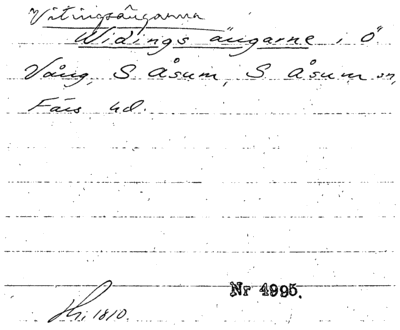 Vitingsängarna
Widings ängarne i Ö
Vång, S Åsum, S Åsum sn,
Färs hd.
Nr 4995.
Hs. 1810.